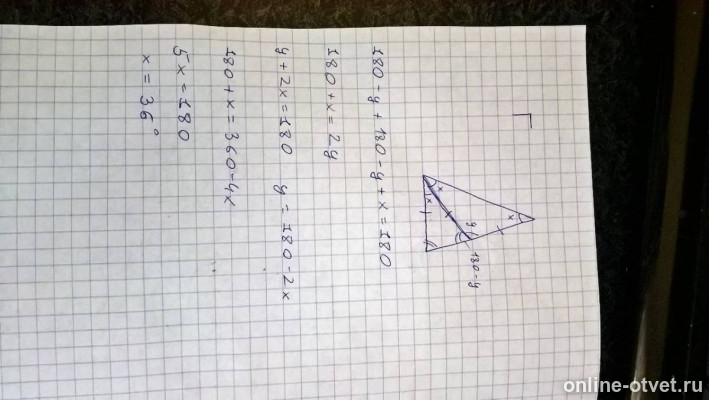 x
y
180-y
x
x
180-y+180-y+x=180
180+x=2y
y+2x=180 y=180-2x
180+x=360-4x
5x=180
x=36°
online-otvet.ru